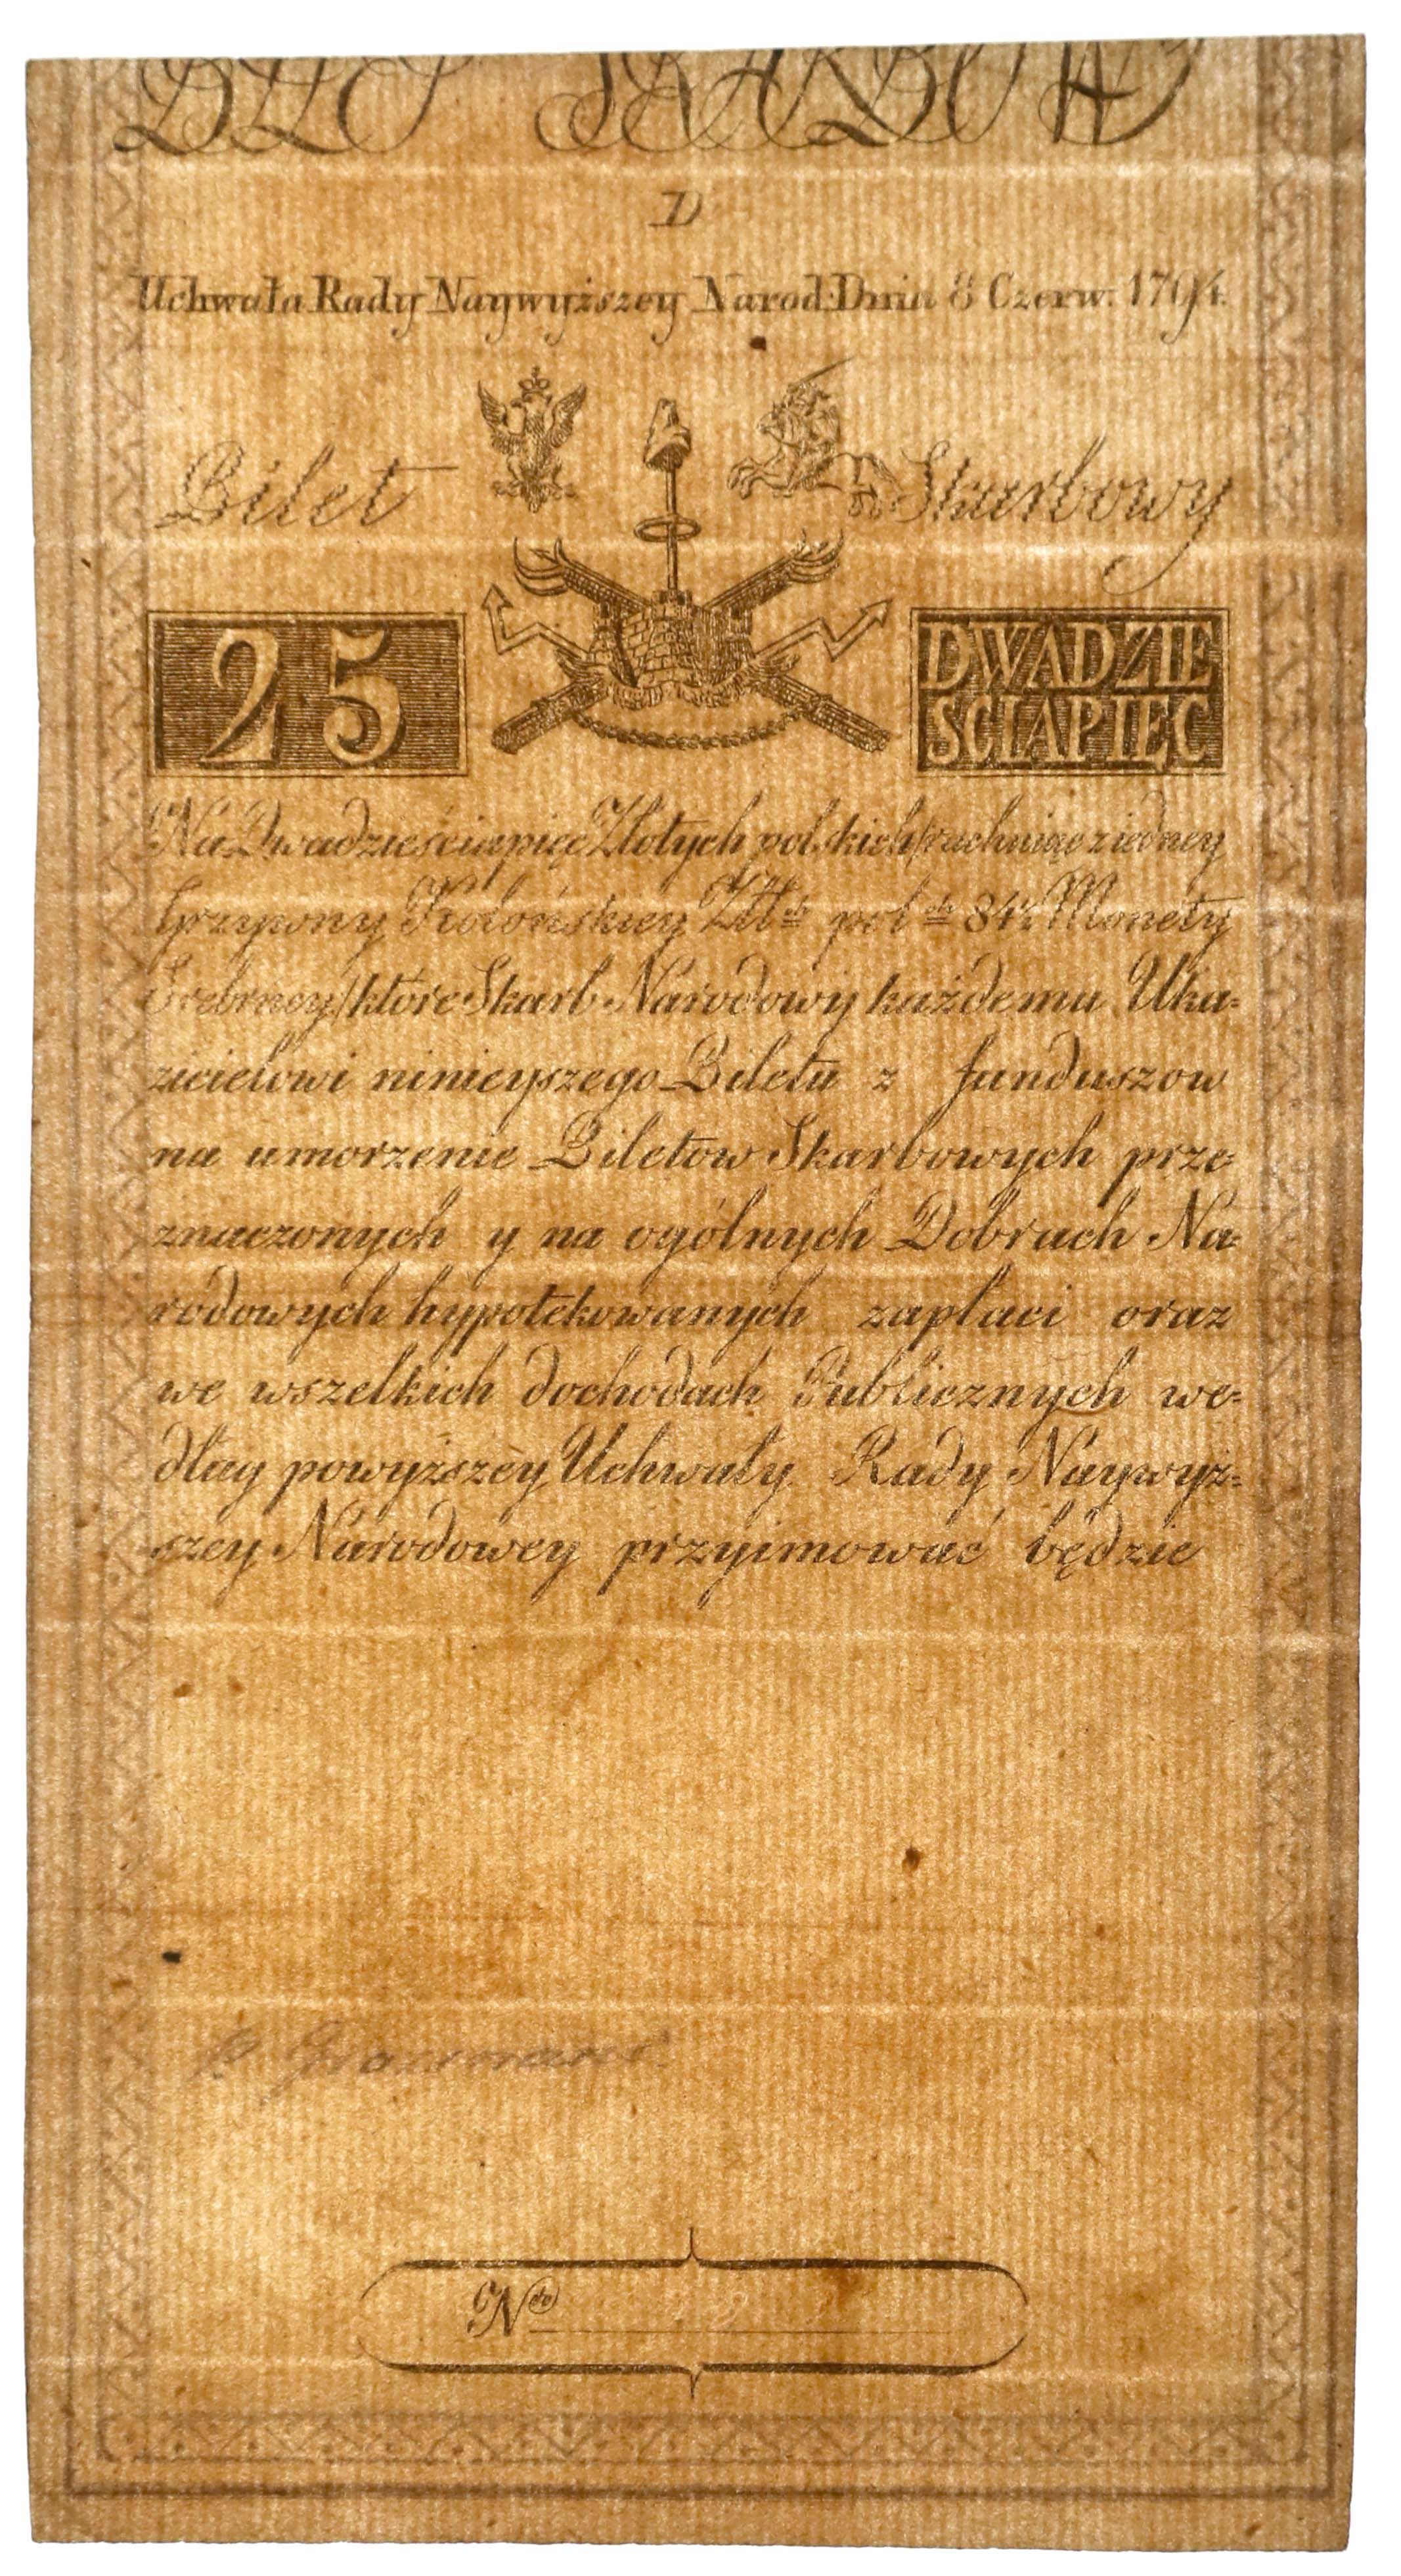 BIL SKARBOWY
D
Uchwała Rady Naywyższey Narod: Dnia 8 Czerw: 1794.
Bilet Skarbowy
25
DWADZIE
SCIAPIĘC
Na Dwadzieściapięć Złotych polskich /rachuiąc z iedney
Grzywny Kolońskiey Złłch polch 84½ Monety
Srebrney/ które Skarb Narodowy każdemu Uka=
zicielowi ninieyszego Biletu z funduszow
na umorzenie Biletow Skarbowych prze=
znaczonych y na ogólnych Dobrach Na=
rodowych hypotekowanych zapłaci oraz
we wszelkich dochodach Publicznych we=
dług powyższèy Uchwały Rady Naywyż=
szey Narodowey przyimować będzie
Nro